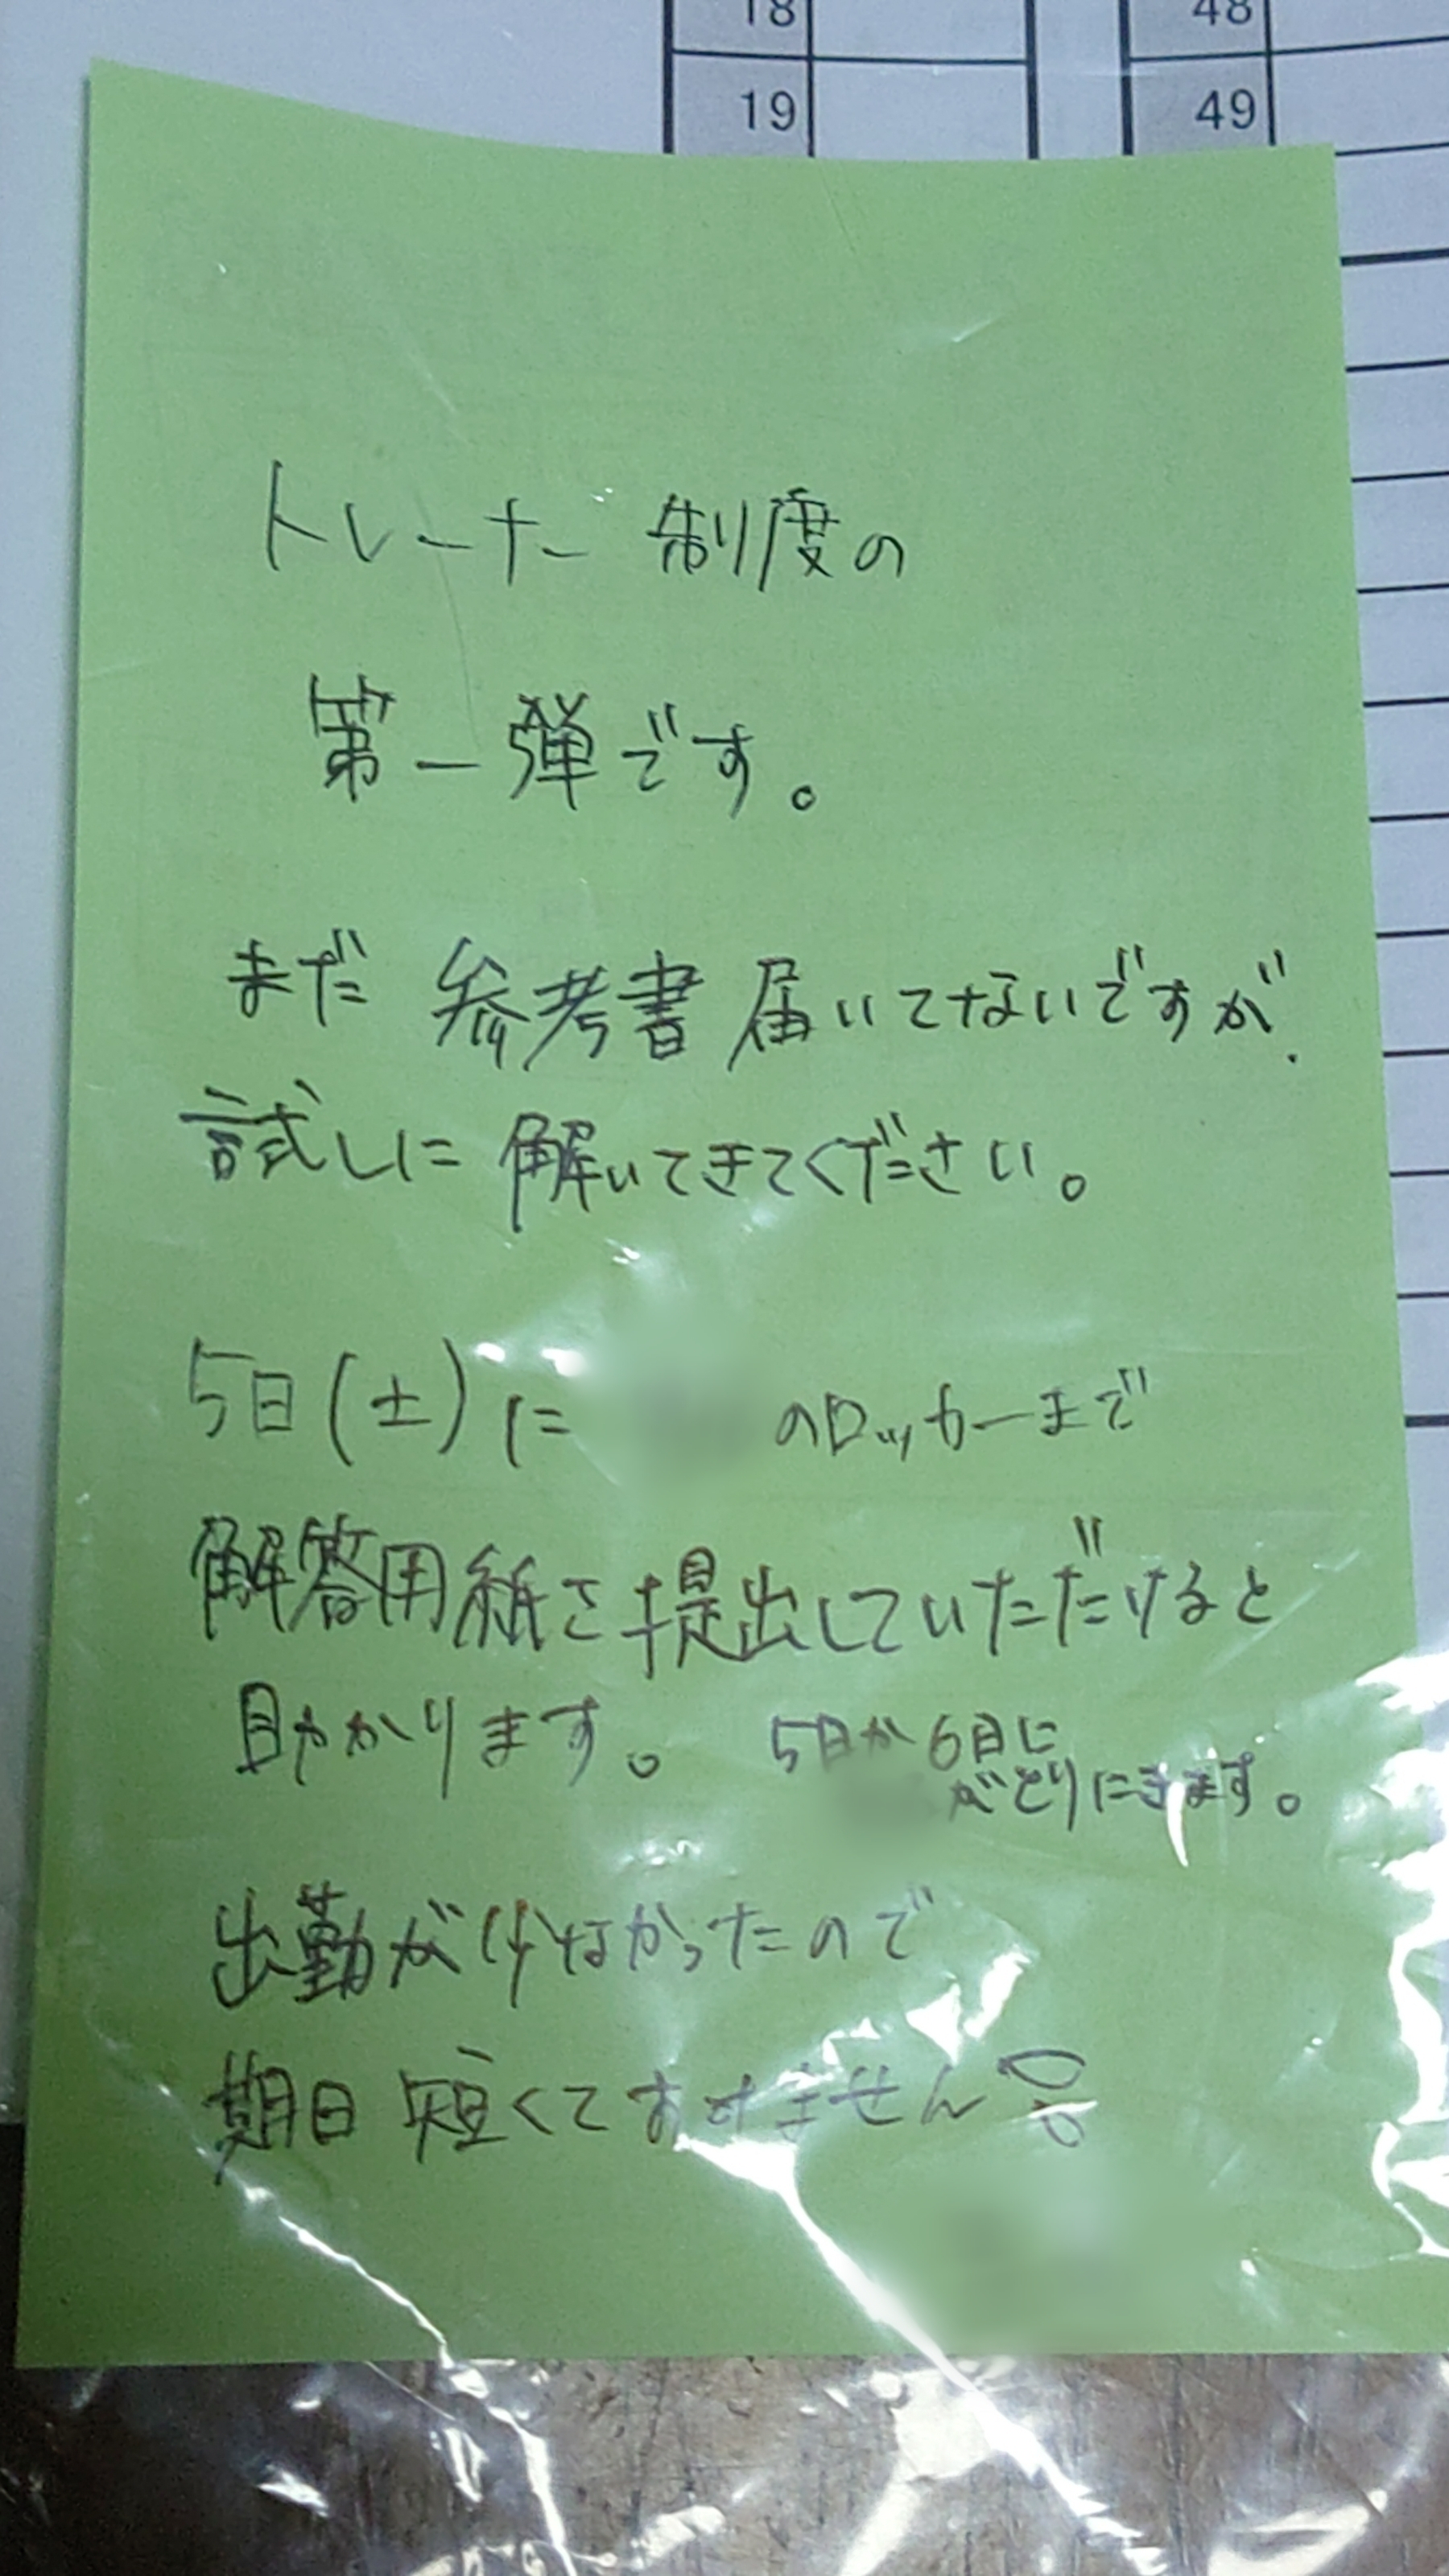 18
48
19
49
トレーナー制度の
第一弾です。
まだ 参考書 届いてないですが、
試しに 解いてきてください。
5日(土)に
のロッカーまで
解答用紙を提出していただけると
助かります。
5日か6日に
がとりにきます。
出勤が なかったので
期日 短くてすみません